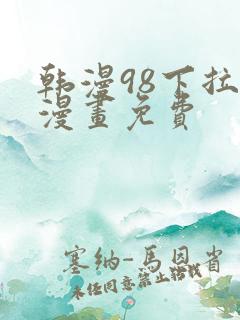 韩漫98下拉
漫畫免費
塞纳-馬恩省
未经同意禁止转载